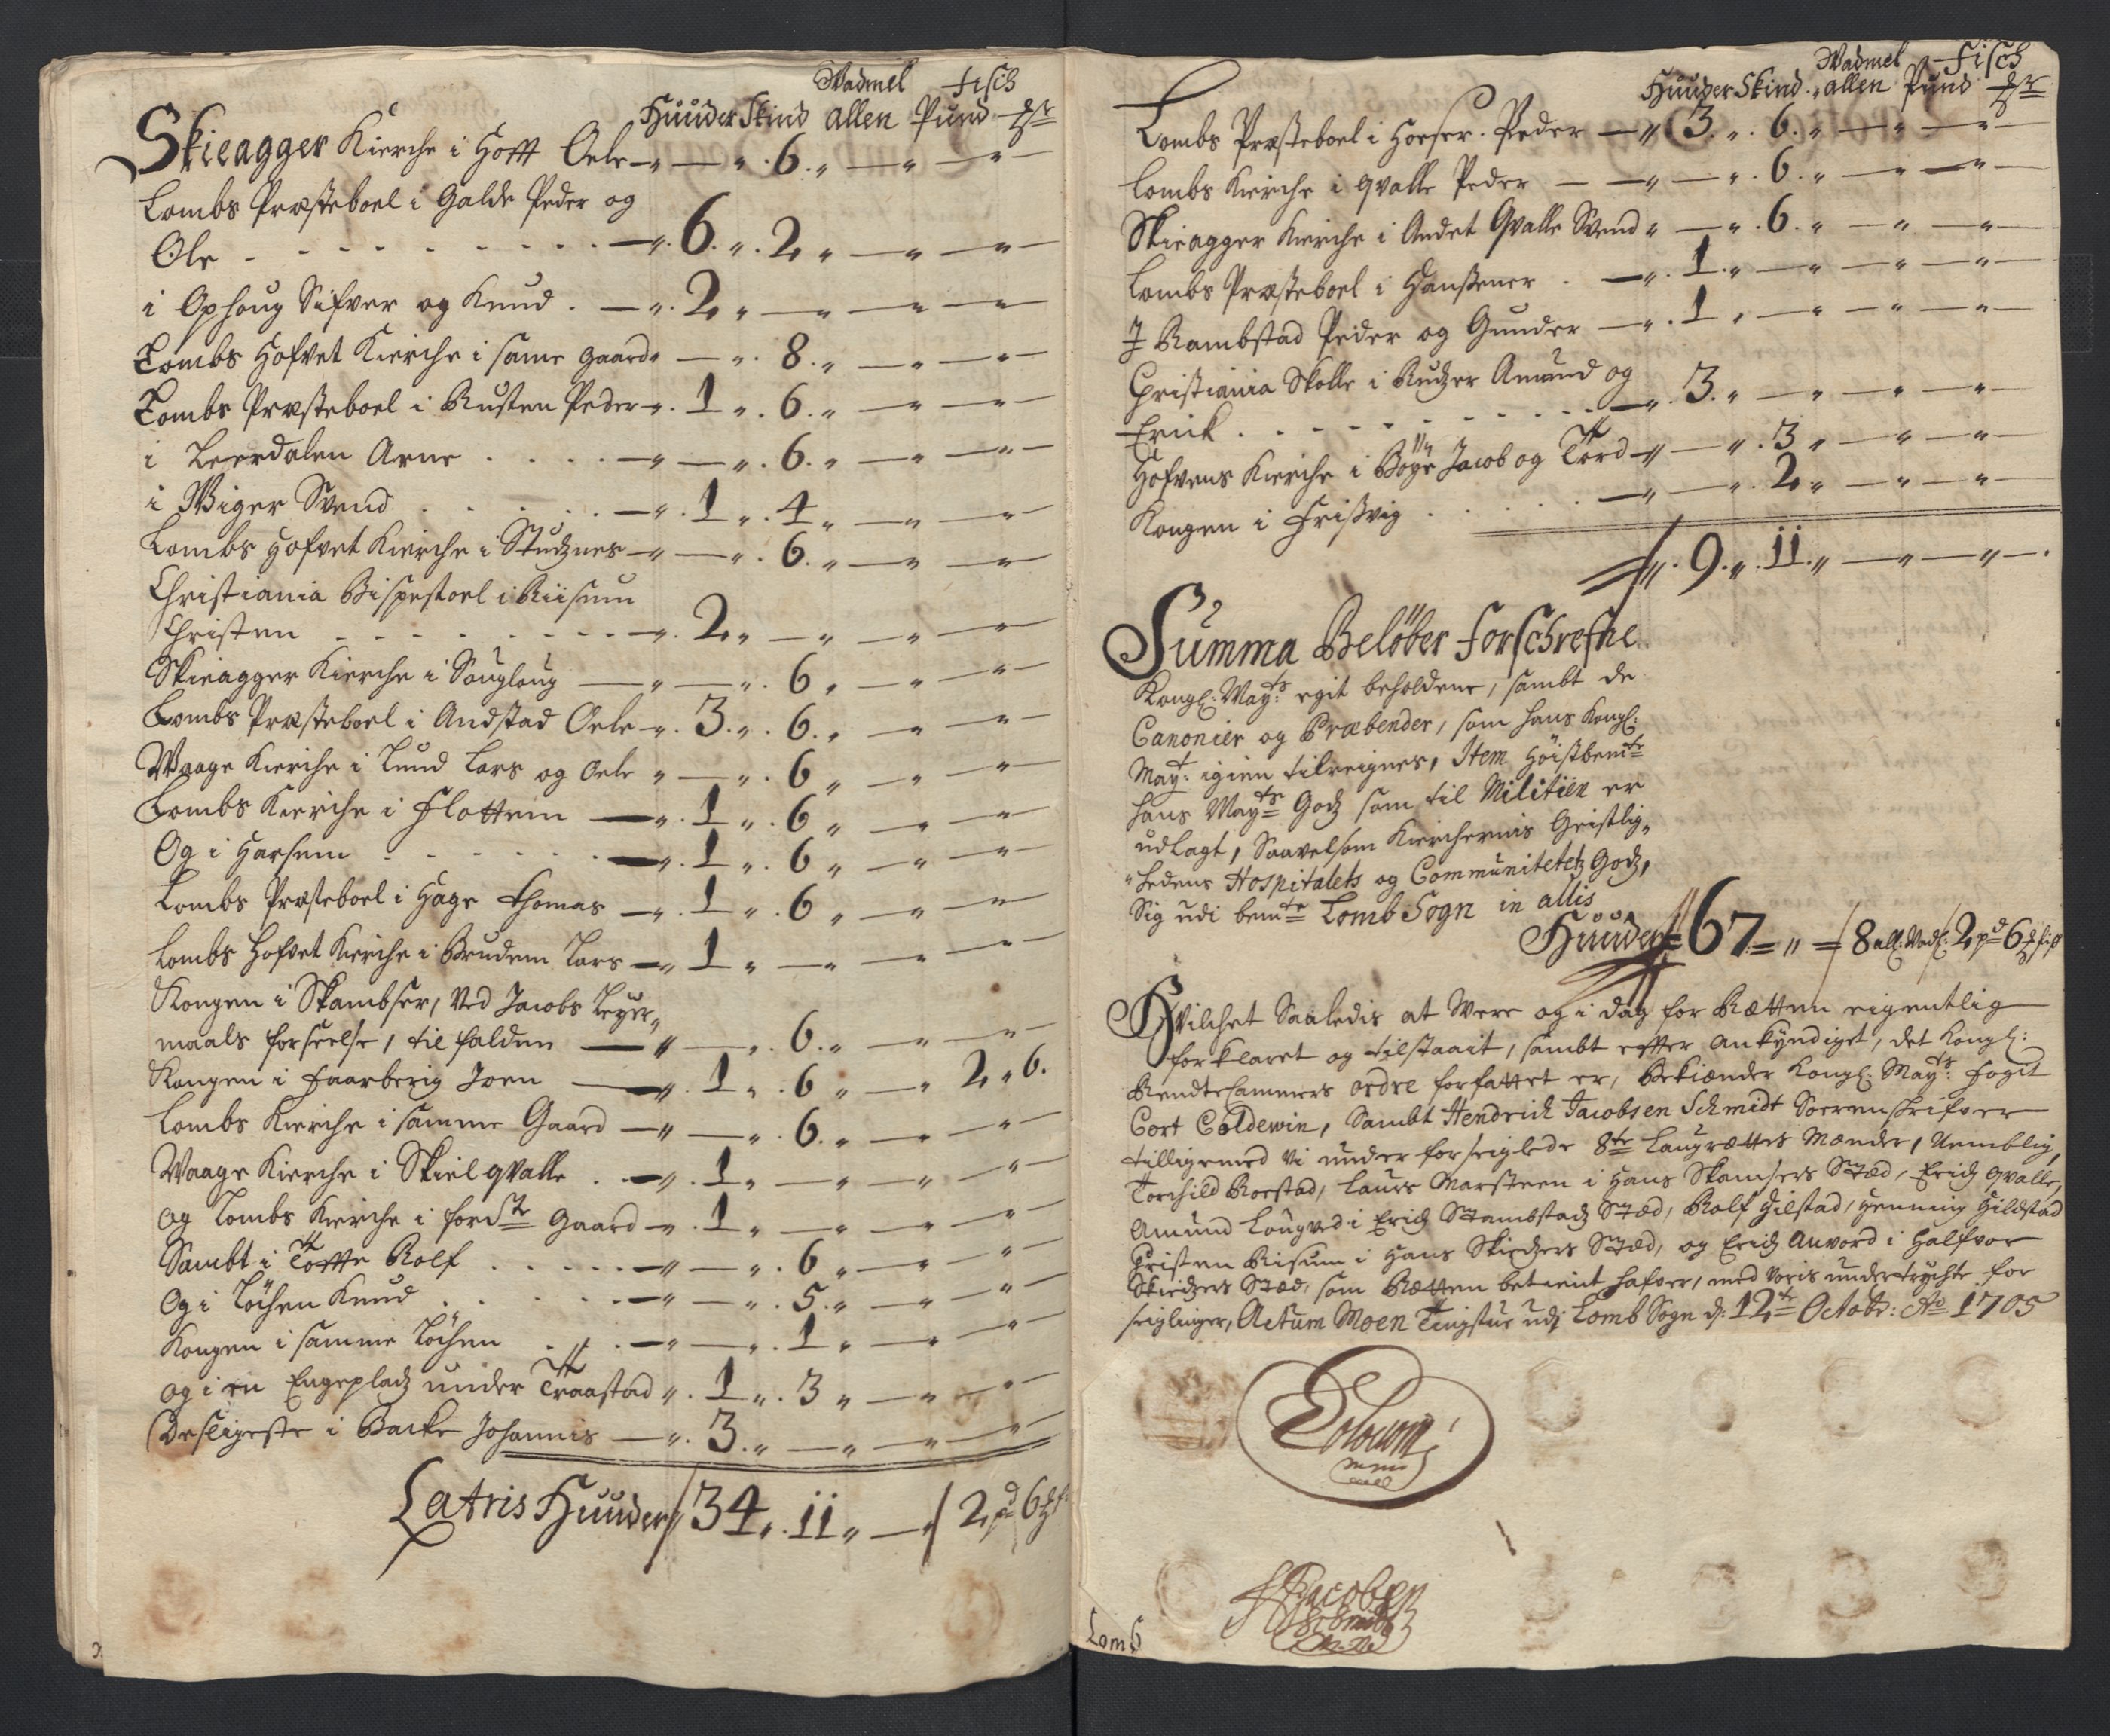 Wadmel Fisch
Huuder Skind allen Pund
Skieagger Kierche i Hoff Oele — 6
Lombs Præsteboel i Galde Peder og
Ole — 6 . 2
i Ophoug Sifver og Knud . — 2
Lombs Hofvet Kierche i same gaard — 8
Lombs Præsteboel i Rusten Peder — 1 . 6
i Leerdalen Arne — 6
i Wiger Svend — 1 . 4
Lombs Hofvet Kierche i Studznes — 6
Christiania Bispestoel i Riisum
Christen — 2
Skieagger Kierche i Sougloug — 6
Lombs Præsteboel i Andstad Oele — 3 . 6
Waage Kierche i Lund Lars og Oele — 6
Lombs Kierche i Flottem — 1 . 6
Og i Harsem — 1 . 6
Lombs Præsteboel i Hage Thomas — 1 . 6
Lombs Hofvet Kierche i Brudem Lars — 1
Kongen i Skambser, Ved Jacobs Leyer,,
maals forseelse, tilfalden — 6
Kongen i Faarberig Joen — 1 . 6 — 2 . 6.
Lombs Kierche i samme Gaard — 6
Waage Kierche i Skiel qvalle . — 1
og Lombs Kierche i fors gaard — 1
Sambt i Toffte Rolf — 6
Og i Löchen Knud — 5
Kongen i samme Löchen — 1
og i en Engepladz under Traastad — 1 . 3
Desligeste i Backe Johannis — 3
Latris Huuder / 34 . 11 — / 2 pd 6
Wadmel Fisch
Huuder Skind allen Pund
Lombs Præsteboel i Hoeser. Peder — 3 . 6
Lombs Kierche i qvalle Peder — 6
Skieagger Kierche i Andet Qvalle Svend — 6
Lombs Præsteboel i Hanstener . — 1
J Rambstad Peder og Gunder — 1
Christiania Skolle i Rudzer Amund og
Erick — 3
Hofvens Kierche i Böÿe Jacob og Tord — 3
Kongen i Frisvig — 2
9 . 11
Summa Beløber forschrefne
Kongl: Mayts: egit beholdene, sambt de
Canonier og Præbender, som hans Kongl:
Mayt: igien tilreignes, Item Höistbemte
hans Mayts Godz som til Militien er
udlagt, Saavelsom Kierchernis Geistlig,,
,,hedens Hospitalets og Communitetetz Godz,
Sig udi bemte Lomb Sogn in allis
Huuder 67 = 8 all: Vadl: 2 pd 6 fisk
Hvilchet Saaledis at Were og i dag for Rætten eigentlig
forklaret og tilstaait, sambt efter ankyndiget, det Kongl:
RendteCammers ordre forfattet er, Bekiænder Kongl. Mayts: Fogit
Cort Coldewin, Sambt Hendrich Jacobsen Schmidt Sorenskrifver
tilligemed Vi underforseiglede 8te Laugrættes Mænder, Nemblig,
Torchild Roestad, Laurs Marsteen i Hans Skamsers Stæd, Erich qvalle,
Amund Lougved i Erich Stambstadz Stæd, Rolf Gilstad, Henning Gildstad
Cristen Risum i Hans Skiedzers Stæd, og Erich Anvord i Halfvor
Skiedzers Stæd, som Rætten betient hafver, med voris undertrychte for
seiglinger, Actum Moen Tingstue udj Lomb Sogn d: 12te Octobr: Ao 1705
HJacobsen
Schmidt
Lomb